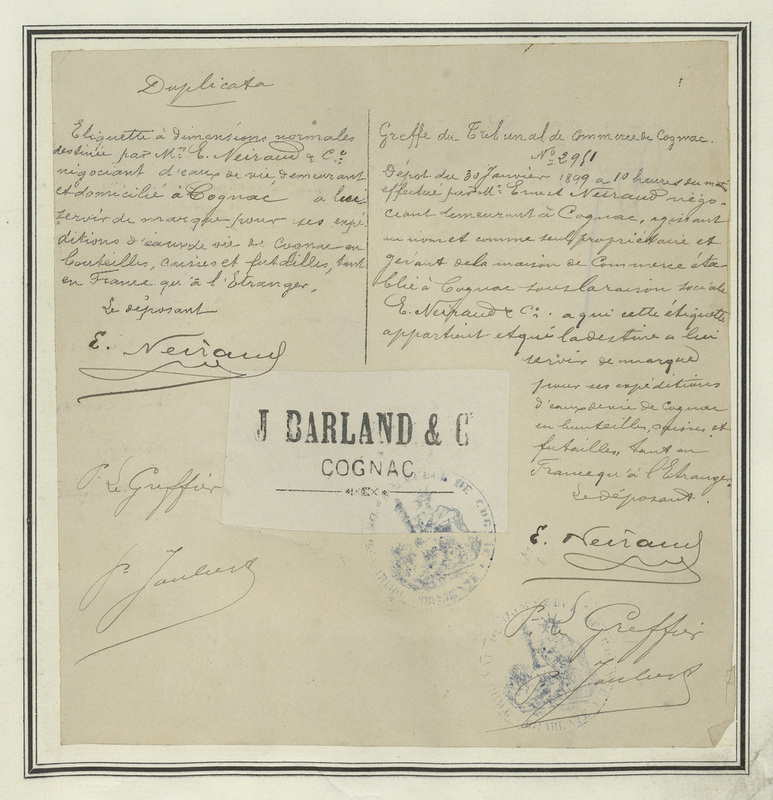 Duplicata
Etiquette à dimensions normales
destinée par Mr. E. Neiraud & Cie
négociant d'eaux de vie demeurant
et domicilié à Cognac à lui
servir de marque pour ses expé-
ditions d'eaux de vie de Cognac en
bouteilles, caisses et futailles, tant
en France qu'à l'Etranger.
Le déposant
E. Neiraud
P. Le Greffier
P. Joubert
Greffe du Tribunal de Commerce de Cognac.
No 2951
Dépot du 30 Janvier 1899 a 10 heures du matin
effectué par Mr. Ernest Neiraud négo-
ciant demeurant à Cognac, agissant
au nom et comme seul propriétaire et
gérant de la maison de Commerce éta-
blie à Cognac sous la raison sociale
E. Neiraud & Cie. a qui cette étiquette
appartient et qui la destine a lui
servir de marque
pour ses expéditions
d'eaux de vie de Cognac
en bouteilles, caisses et
futailles, tant en
France qu'à l'Etranger.
Le déposant.
E. Neiraud
P. Le Greffier
P. Joubert
J BARLAND & C
COGNAC